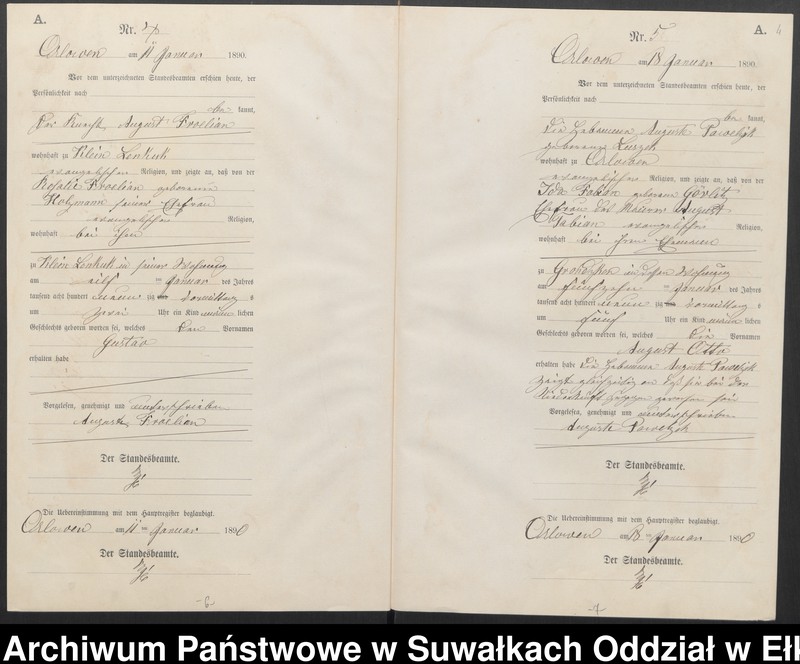 A.
Nr. 4
Orlowen am 11 Januar 1890.
Vor dem unterzeichneten Standesbeamten erschien heute, der
Persönlichkeit nach
be kannt,
Der Knecht, August Froelian
wohnhaft zu Klein Lenkuk
evangelischer Religion, und zeigte an, daß von der
Rosalie Froelian geborenen
Holzmann seiner Ehefrau
evangelischer Religion,
wohnhaft bei ihm
zu Klein Lenkuk in seiner Wohnung
am elf ten Januar des Jahres
tausend acht hundert neun zig Vormittag s
um zwei Uhr ein Kind männ lichen
Geschlechts geboren worden sei, welches den Vornamen
Gustav
erhalten habe
Vorgelesen, genehmigt und unterschrieben
August Froelian
Der Standesbeamte.
Die Uebereinstimmung mit dem Hauptregister beglaubigt.
Orlowen am 11 ten Januar 1890
Der Standesbeamte.
-6-
A. 4
Nr. 5
Orlowen am 18 Januar 1890.
Vor dem unterzeichneten Standesbeamten erschien heute, der
Persönlichkeit nach
be kannt,
Die Hebamme Auguste Pawelzik
geborene
wohnhaft zu Orlowen
evangelischer Religion, und zeigte an, daß von der
Ida Fabian geborene Görlitz
Ehefrau des Maurers August
Fabian evangelischer Religion,
wohnhaft bei ihrem Ehemann
zu in dessen Wohnung
am fünfzehn ten Januar des Jahres
tausend acht hundert neun zig Vormittag s
um fünf Uhr ein Kind männ lichen
Geschlechts geboren worden sei, welches die Vornamen
August Otto
erhalten habe Die Hebamme Auguste Pawelzik
zeigte gleichzeitig an daß sie bei der
Niederkunft zugegen gewesen sei
Vorgelesen, genehmigt und unterschrieben
Auguste Pawelzik
Der Standesbeamte.
Die Uebereinstimmung mit dem Hauptregister beglaubigt.
Orlowen am 18 ten Januar 1890
Der Standesbeamte.
-7-
Archiwum Państwowe w Suwałkach Oddział w Ełk